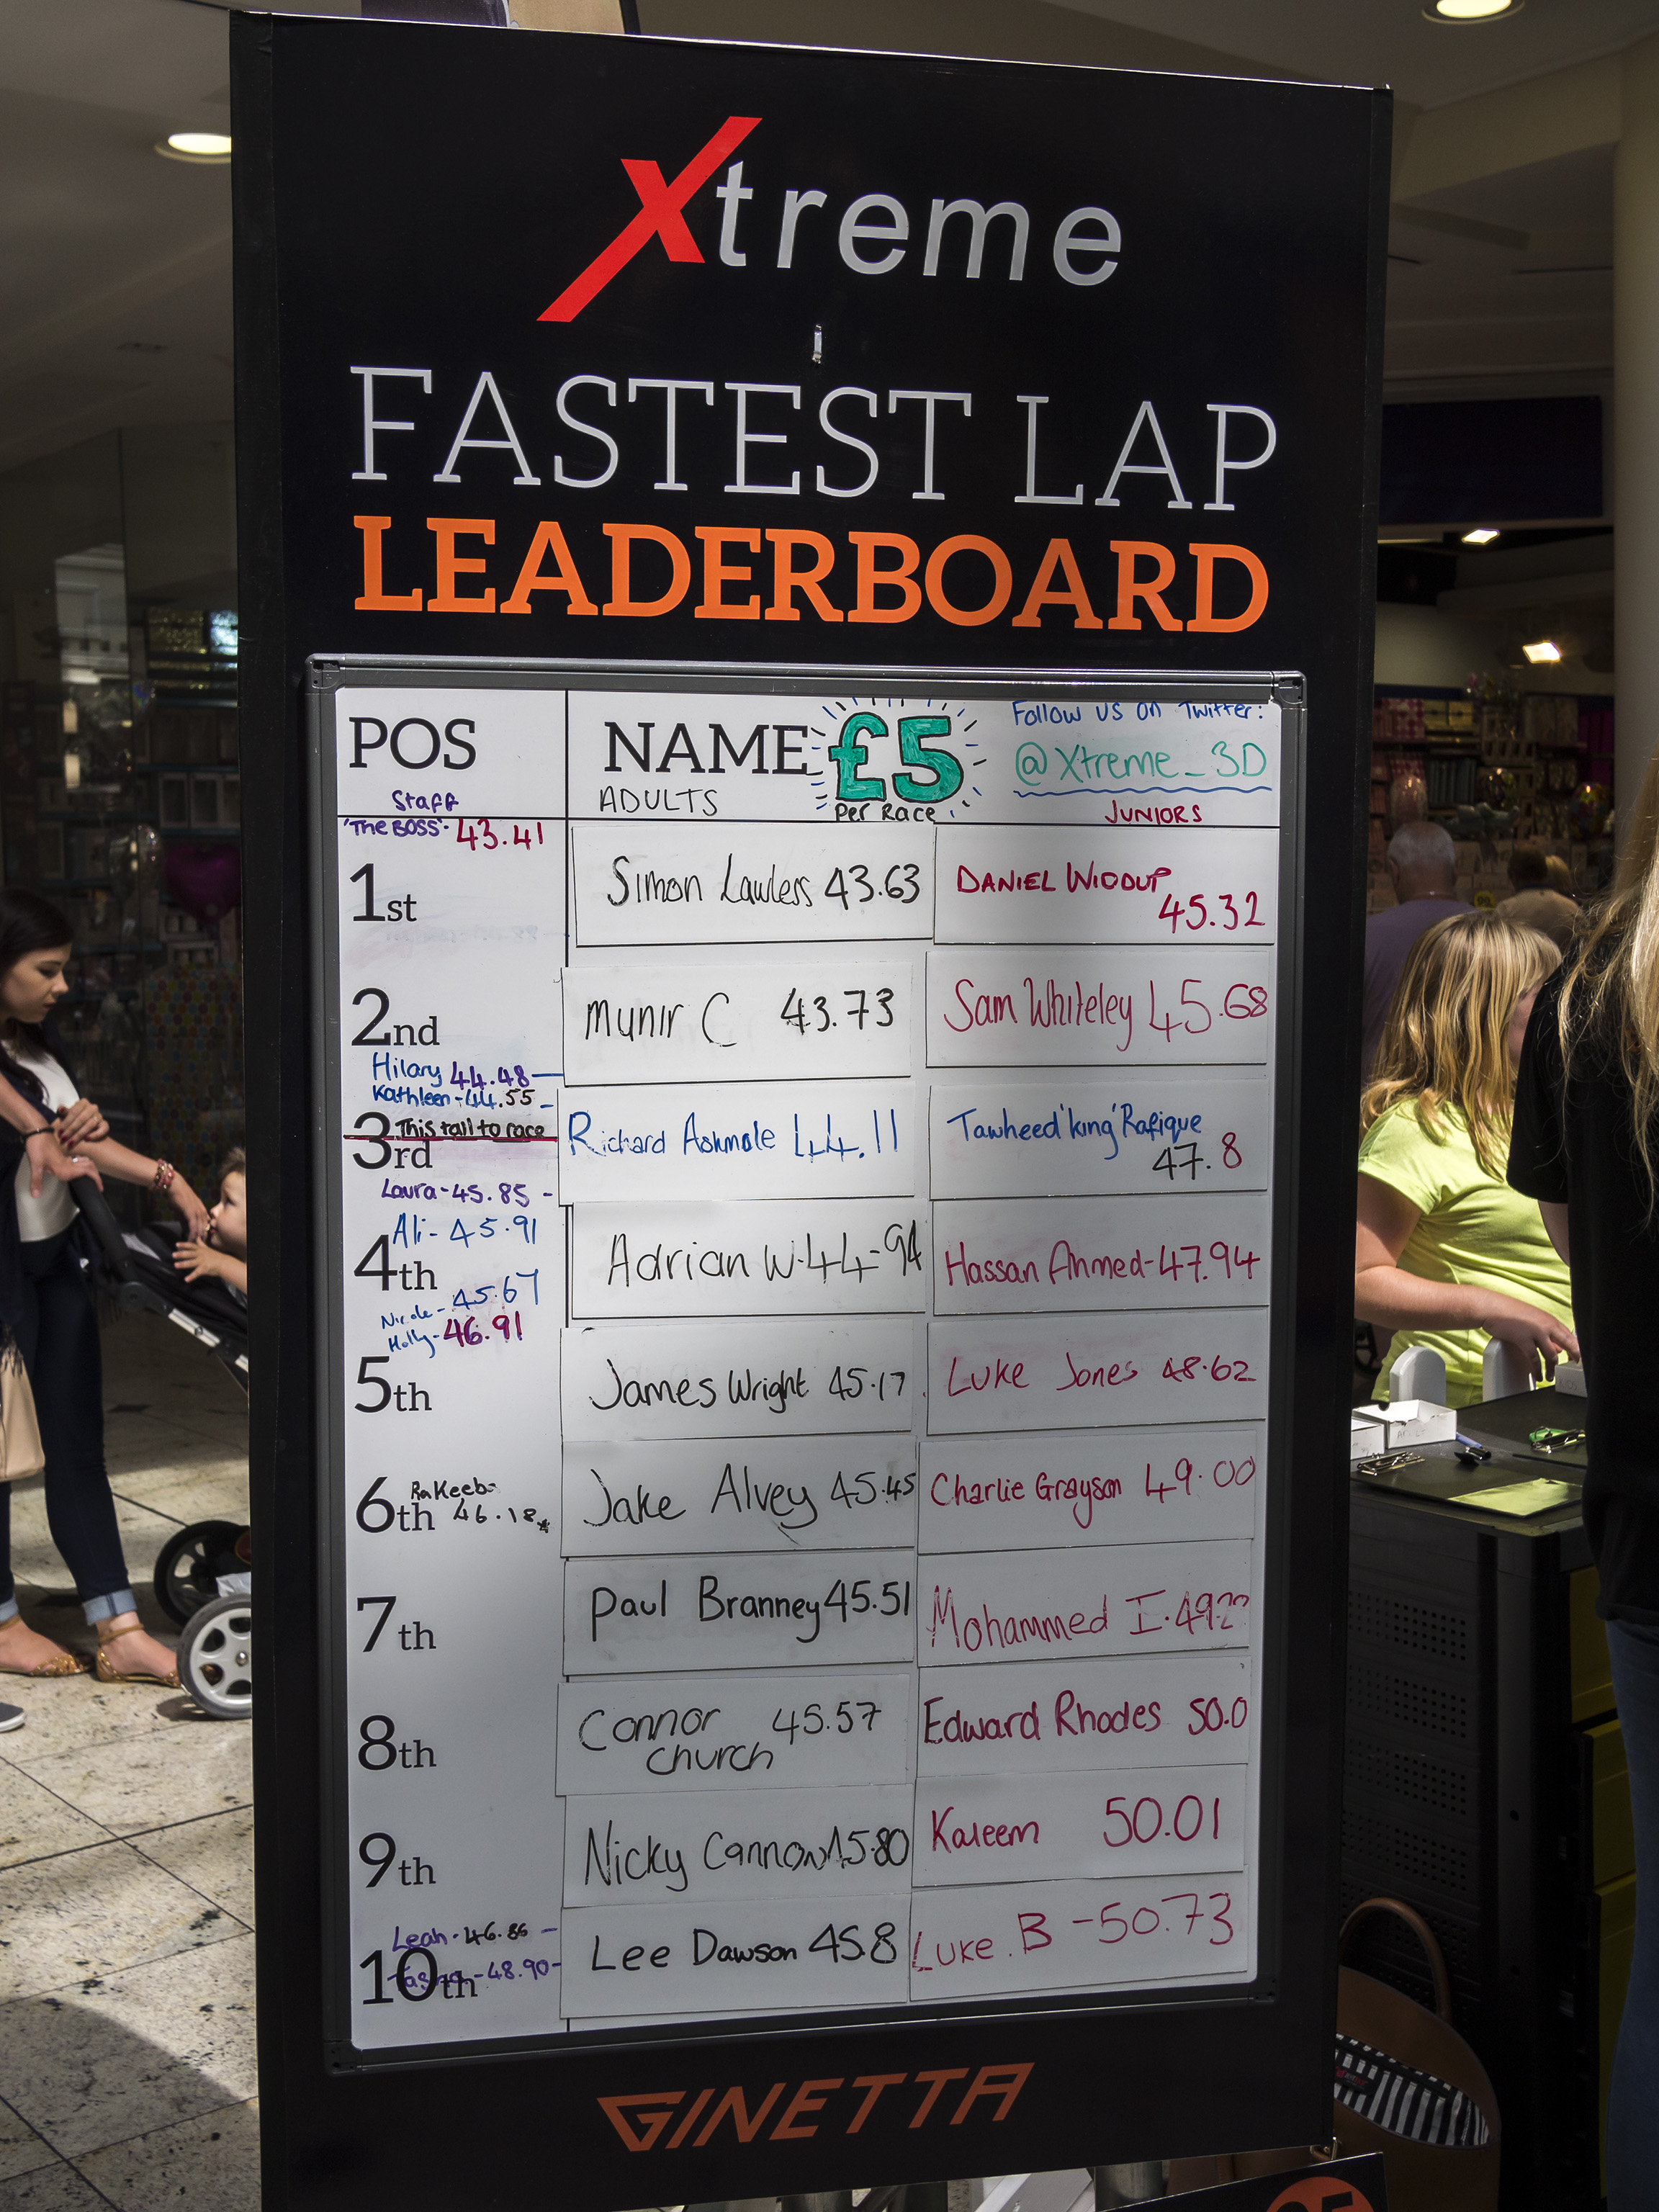 Xtreme
FASTEST LAP
LEADERBOARD
POS
Staff
NAME
ADULTS
£5
Per Race
Follow us on Twitter:
@Xtreme_3D
JUNIORS
'The BOSS'- 43.41
1st
Simon Lawless 43.63
DANIEL WIDDUP
45.32
2nd
Munir C 43.73
Sam Whiteley 45.68
Hilary 44.48
Kathleen - 44.55
This tall to race
3rd
Richard Ashmole 44.11
Tawheed 'king' Rafique
47.8
Laura - 45.85
Ali - 45.91
4th
Adrian W - 44-94
Hassan Ahmed - 47.94
Nicole - 45.67
Holly - 46.91
5th
James Wright 45.17
Luke Jones 48.62
RaKeeb-
6th 46.18
Jake Alvey 45.45
Charlie Grayson 49.00
7th
Paul Branney 45.51
Mohammed I. 49.??
8th
Connor 45.57
church
Edward Rhodes 50.0
9th
Nicky Cannon 45.80
Kaleem 50.01
Leah - 46.86
10th
- 48.90
Lee Dawson 45.8
Luke. B - 50.73
GINETTA